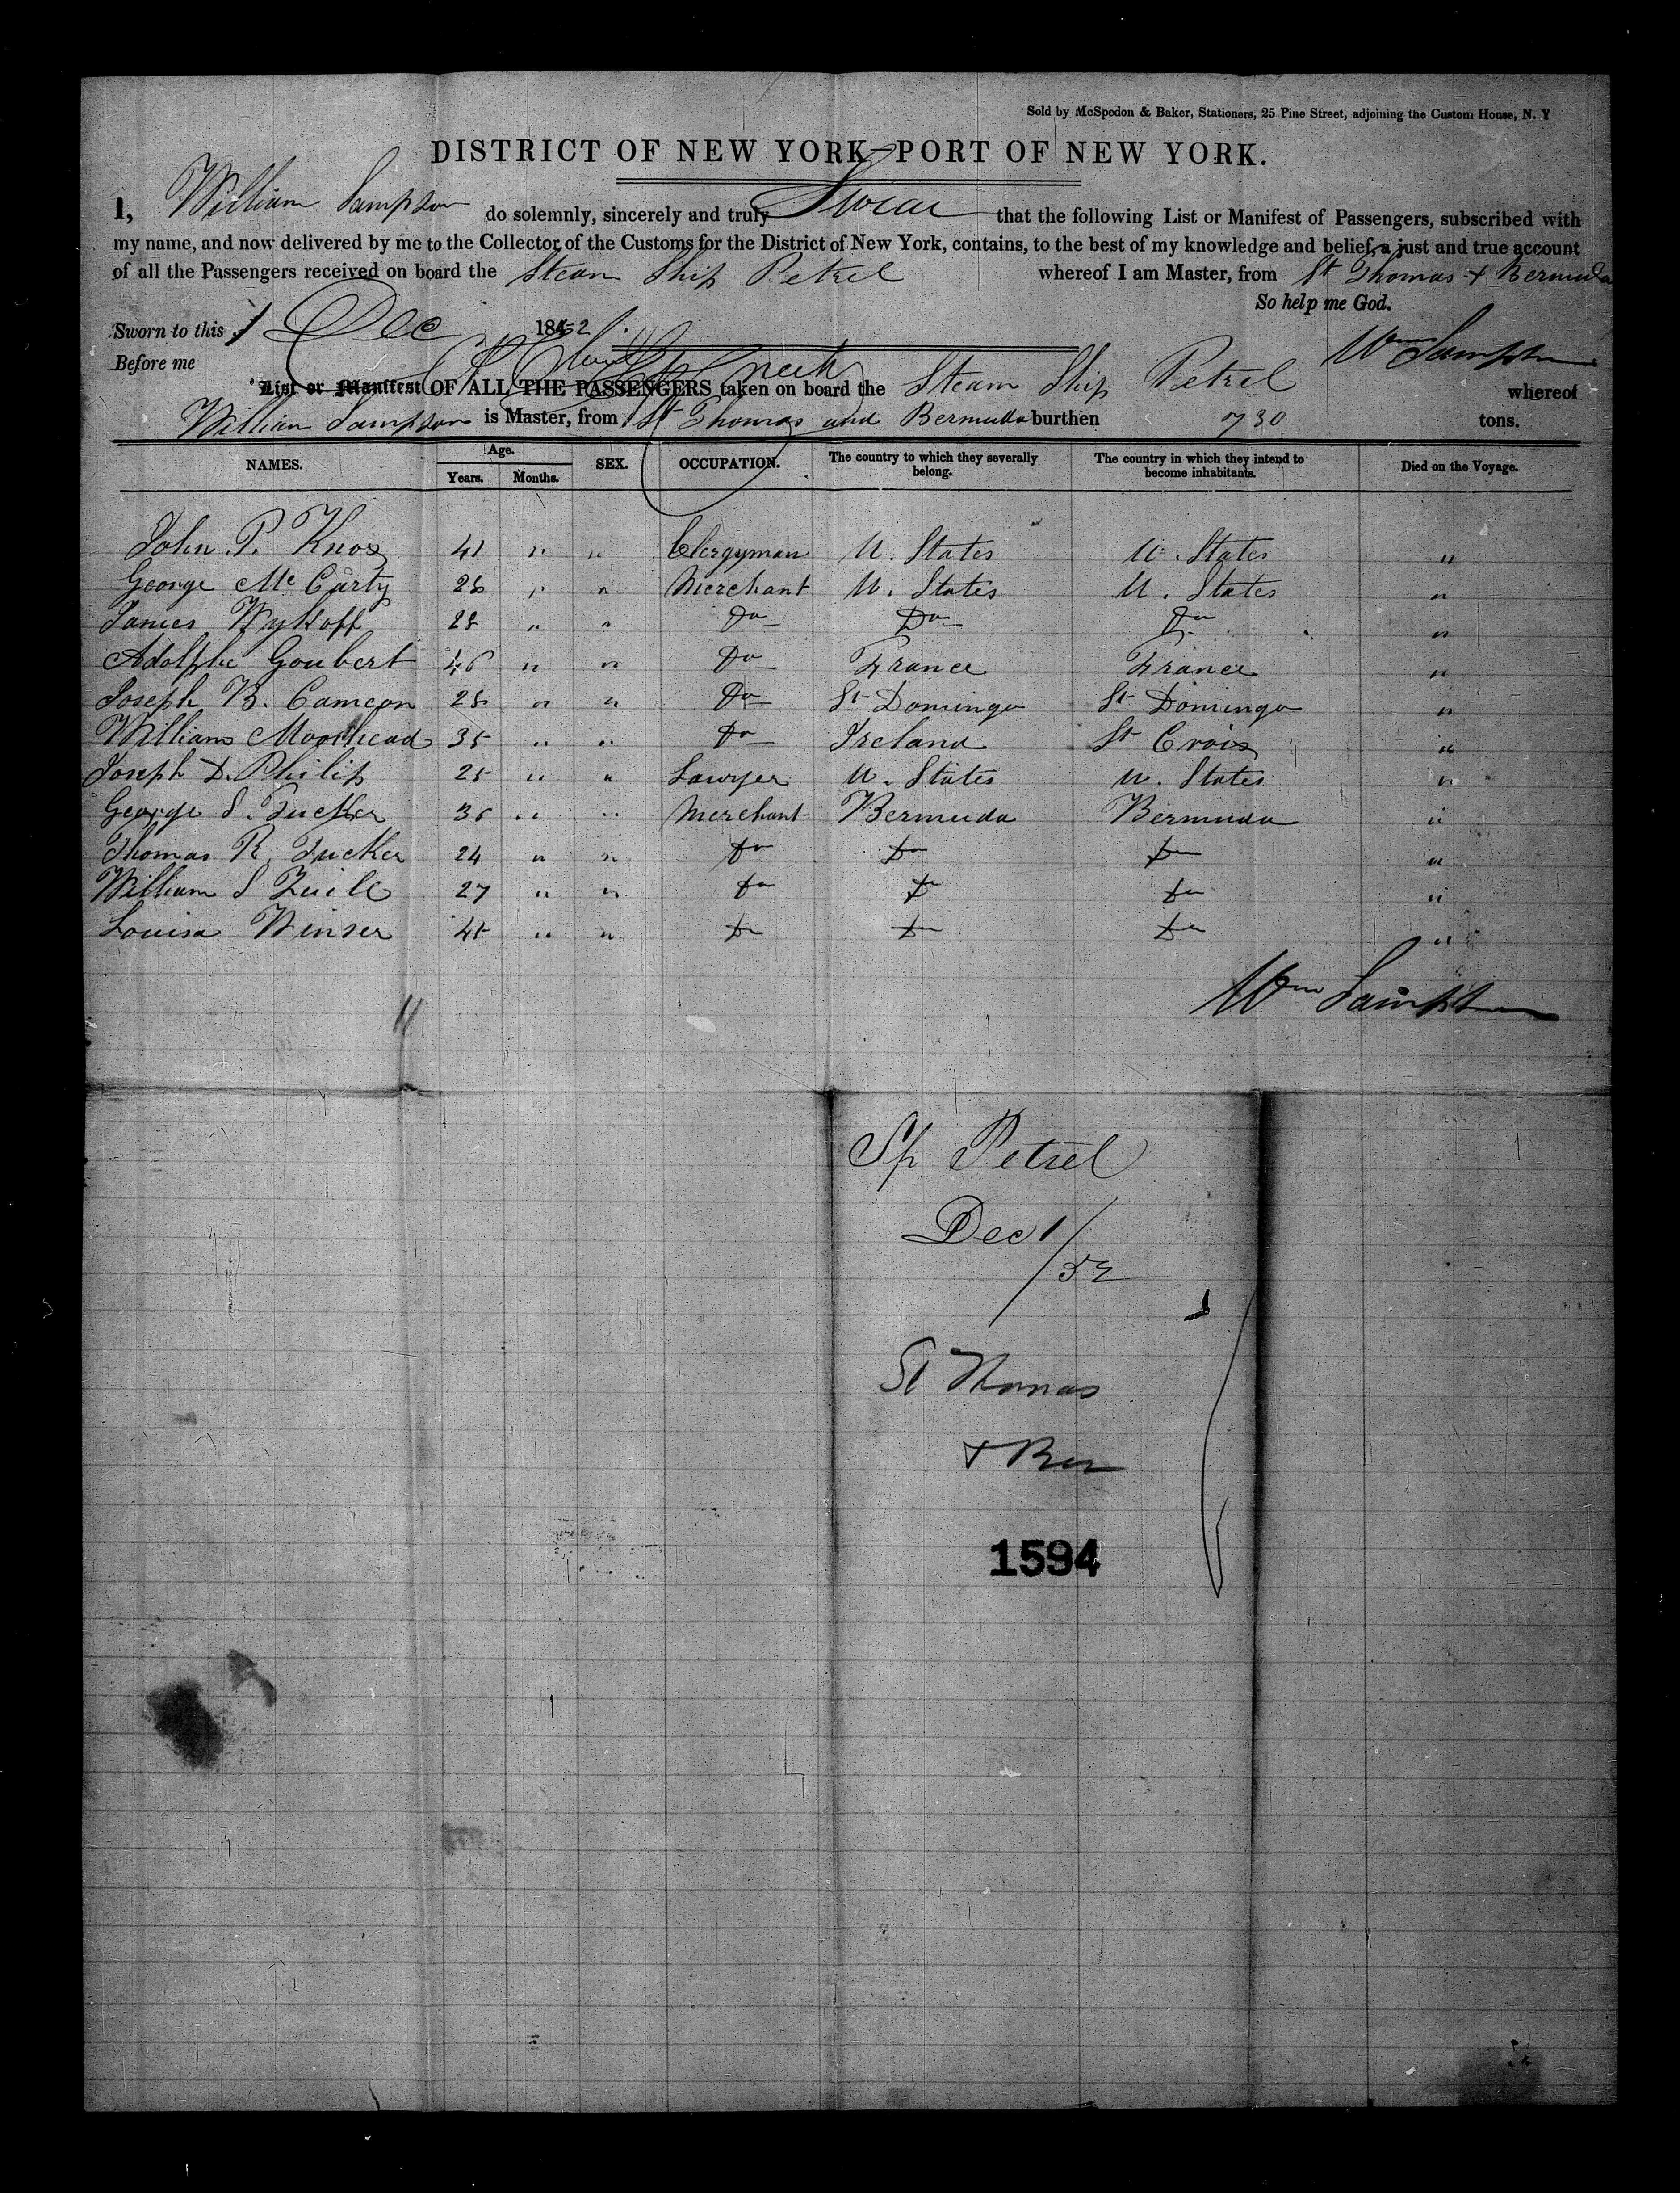 Sold by McSpedon & Baker, Stationers, 25 Pine Street, adjoining the Custom House, N. Y
DISTRICT OF NEW YORK—PORT OF NEW YORK.
I, William Sampson do solemnly, sincerely and truly Swear that the following List or Manifest of Passengers, subscribed with
my name, and now delivered by me to the Collector of the Customs for the District of New York, contains, to the best of my knowledge and belief, a just and true account
of all the Passengers received on board the Steam Ship Petrel whereof I am Master, from St Thomas & Bermuda
So help me God.
Sworn to this 1 Dec 1852.
Wm Sampson
Before me
List or Manifest OF ALL THE PASSENGERS taken on board the Steam Ship Petrel whereof
William Sampson is Master, from St Thomas and Bermuda burthen 730 tons.
NAMES. Age. Years. Months. SEX. OCCUPATION. The country to which they severally belong. The country in which they intend to become inhabitants. Died on the Voyage.
John P. Knox 41 " " Clergyman U. States U. States "
George Mc Carty 28 " " Merchant U. States U. States "
James Wykoff 28 " " Do Do Do "
Adolphe Goubert 46 " " Do France France "
Joseph B. " " Do St Domingo St Domingo "
William Moorhead 35 " " Do Ireland St Croix "
Joseph D. Philip 25 " " Lawyer U. States U. States "
George S. Tucker 36 " " Merchant Bermuda Bermuda "
Thomas R. Tucker 24 " " Do Do Do "
William S 27 " " Do Do Do "
Louisa Winser " " Do Do Do "
Wm Sampson
11
Sp Petrel
Dec 1/52
St Thomas
& Ber
1594